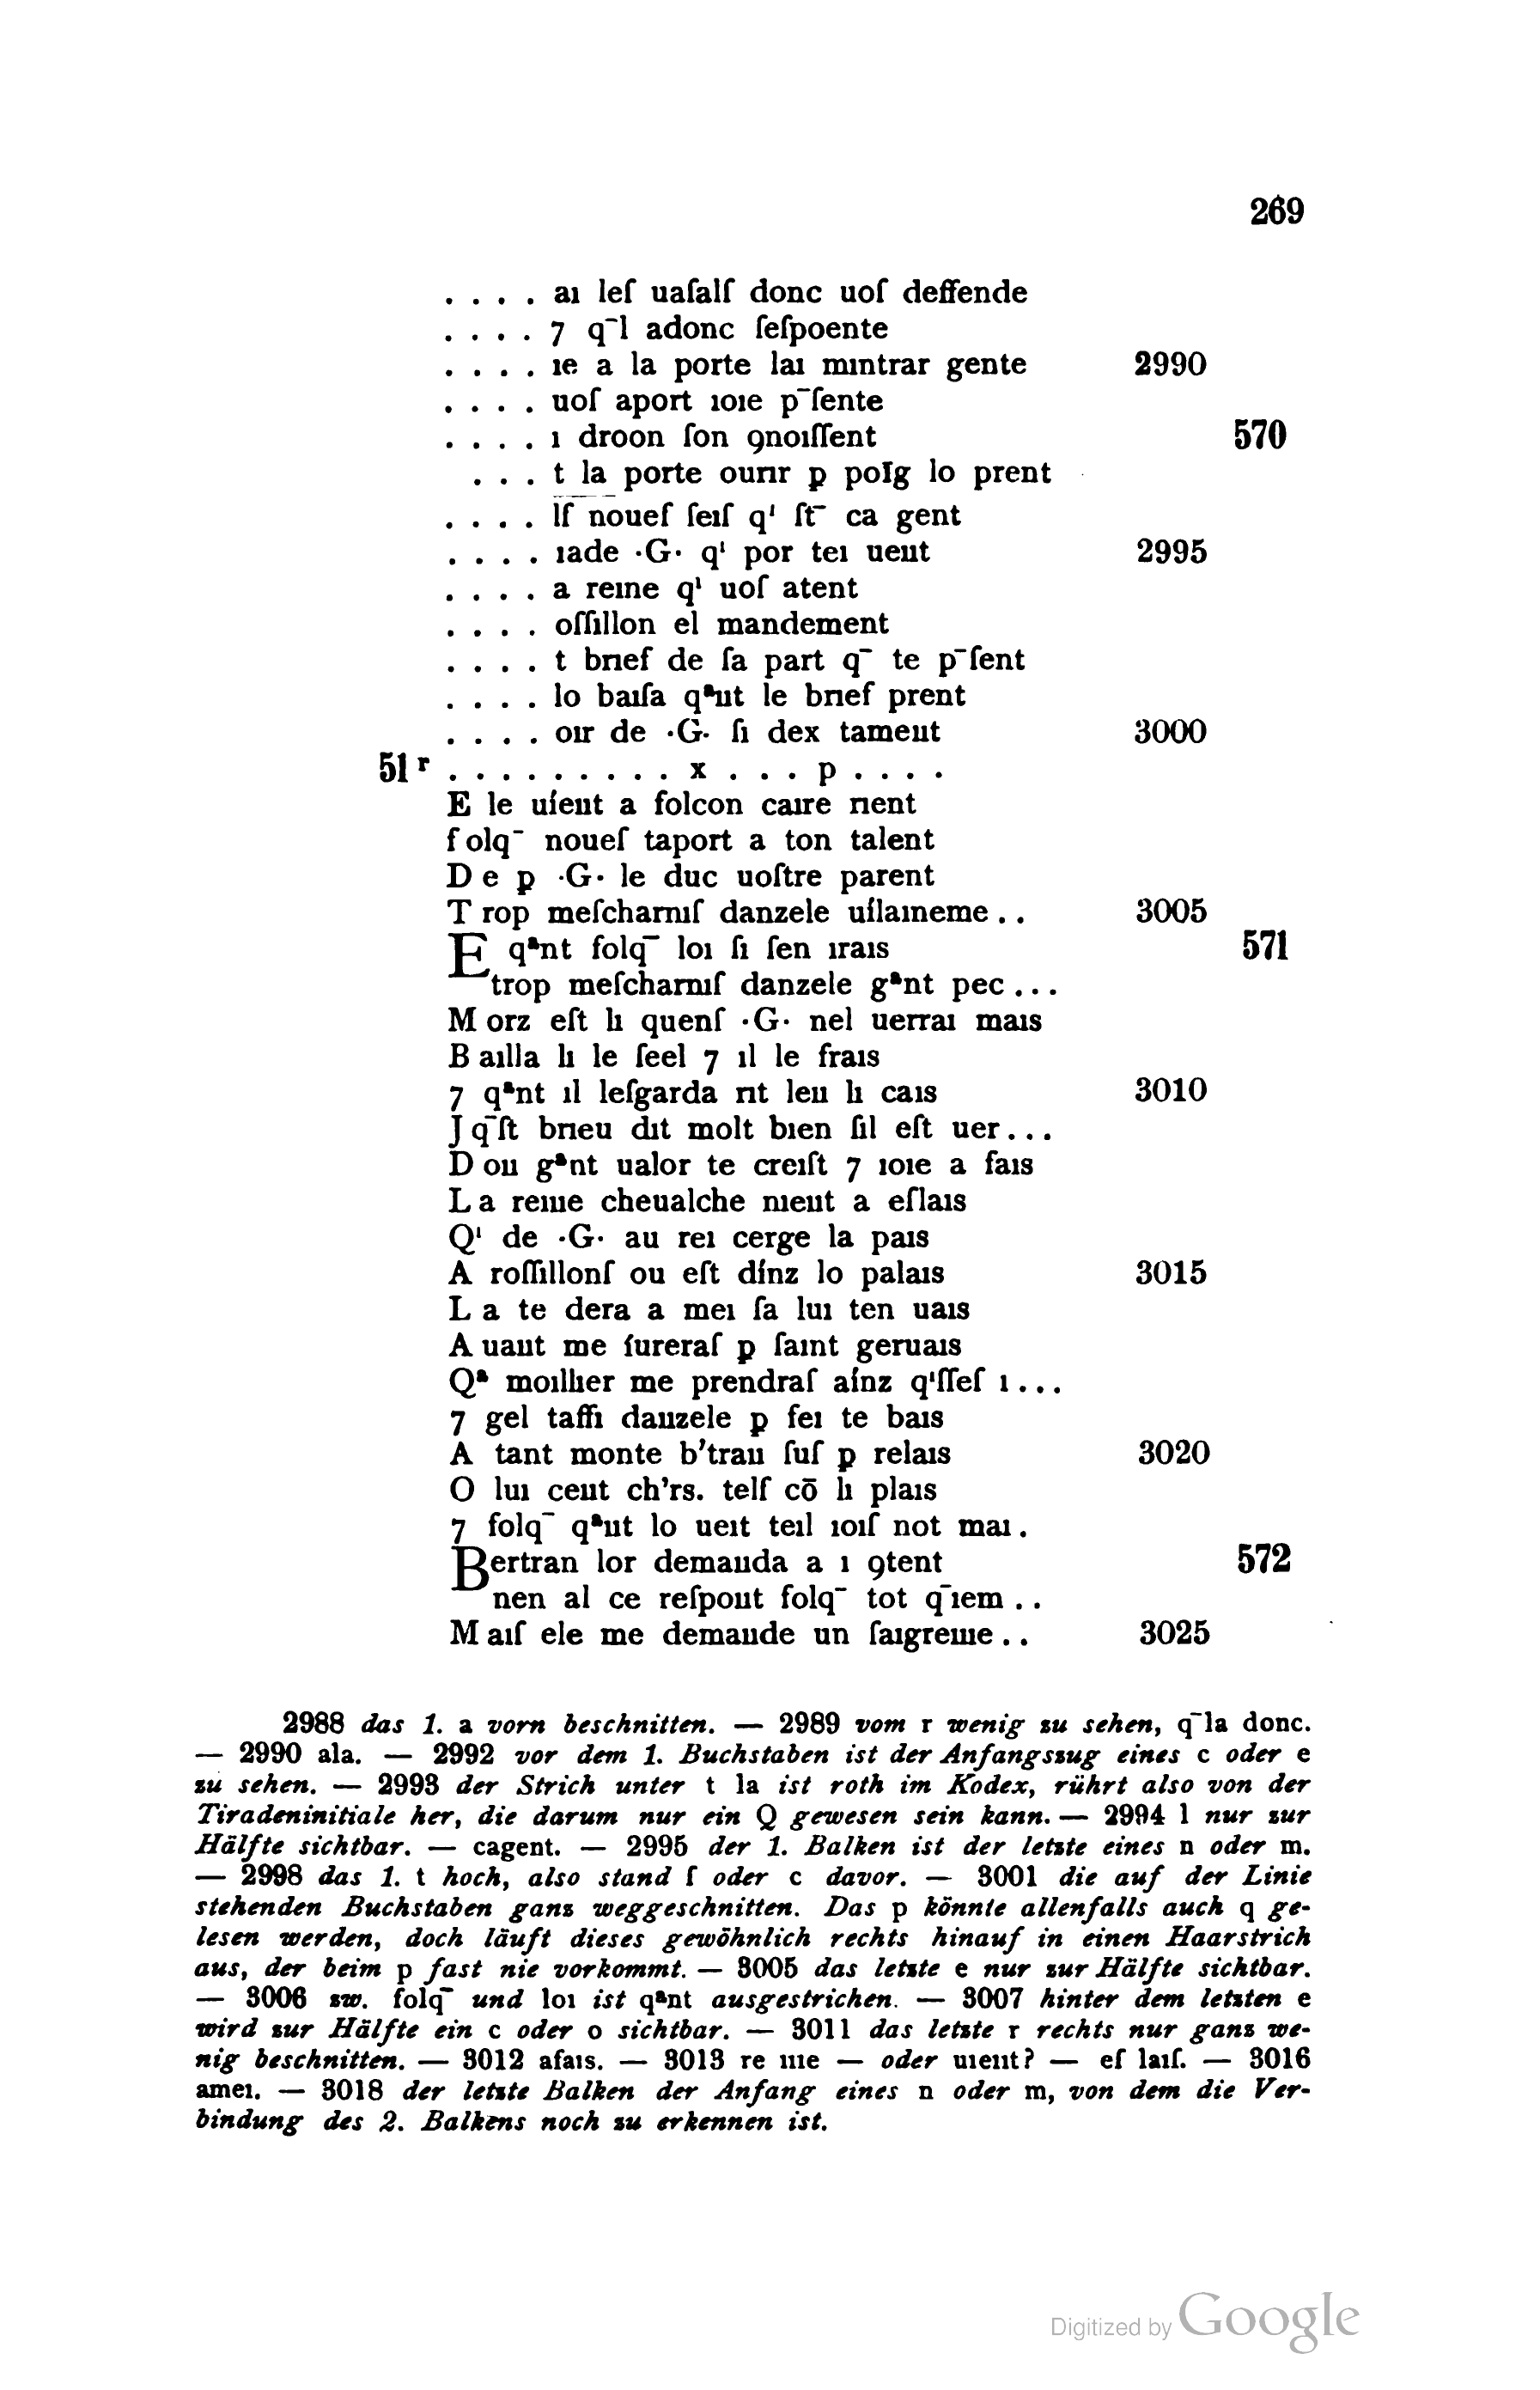 269
. . . . aı leſ uaſalſ donc uoſ deffende
. . . . 7 q̄l adonc ſeſpoente
. . . . ıe a la porte laı mıntrar gente 2990
. . . . uoſ aport ıoıe p̄ſente
. . . . ı droon ſon 9noıſſent 570
. . . t la porte ourır ꝑ poīg lo prent
. . . . lſ nouef ſeıſ qⁱ ſt̄ ca gent
. . . . ıade ·G· qⁱ por teı ueut 2995
. . . . a reıne qⁱ uoſ atent
. . . . oſſıllon el mandement
. . . . t brıef de ſa part q̄ te p̄ſent
. . . . lo baıſa qᵃut le brıef prent
. . . . oır de ·G· ſı dex tameut 3000
51 r . . . . . . . . . x . . . p . . . .
E le uíeut a folcon caıre rıent
f olq̄ nouef taport a ton talent
D e ꝑ ·G· le duc uoſtre parent
T rop meſcharnıſ danzele uílaıneme . . 3005
E qᵃnt folq̄ loı ſı ſen ıraıs 571
trop meſcharnıſ danzele gᵃnt pec . . .
M orz eſt lı quenſ ·G· nel uerraı maıs
B aılla lı le ſeel 7 ıl le fraıs
7 qᵃnt ıl leſgarda rıt leu lı caıs 3010
J q̄ſt brıeu dıt molt bıen ſıl eſt uer . . .
D ou gᵃnt ualor te creıſt 7 ıoıe a faıs
L a reıue cheualche nıeut a eſlaıs
Qⁱ de ·G· au reı cerge la paıs
A roſſıllonſ ou eſt dínz lo palaıs 3015
L a te dera a meı ſa luı ten uaıs
A uaut me íureraſ ꝑ ſaınt geruaıs
Qᵃ moıllıer me prendraſ aínz qⁱſſeſ ı . . .
7 gel taffı dauzele ꝑ feı te baıs
A tant monte b’trau ſuſ ꝑ relaıs 3020
O luı ceut ch’rs. telſ cō lı plaıs
7 folq̄ qᵃut lo ueıt teıl ıoıſ not maı .
Bertran lor demauda a ı 9tent 572
nen al ce reſpout folq̄ tot q̄ıem . .
M aıſ ele me demaude un ſaıgreıue . . 3025
2988 das 1. a vorn beschnitten. — 2989 vom r wenig zu sehen, q̄la donc.
— 2990 ala. — 2992 vor dem 1. Buchstaben ist der Anfangszug eines c oder e
zu sehen. — 2993 der Strich unter t la ist roth im Kodex, rührt also von der
Tiradeninitiale her, die darum nur ein Q gewesen sein kann. — 2994 l nur zur
Hälfte sichtbar. — cagent. — 2995 der 1. Balken ist der letzte eines n oder m.
— 2998 das 1. t hoch, also stand ſ oder c davor. — 3001 die auf der Linie
stehenden Buchstaben ganz weggeschnitten. Das p könnte allenfalls auch q ge-
lesen werden, doch läuft dieses gewöhnlich rechts hinauf in einen Haarstrich
aus, der beim p fast nie vorkommt. — 3005 das letzte e nur zur Hälfte sichtbar.
— 3006 zw. folq̄ und loı ist qᵃnt ausgestrichen. — 3007 hinter dem letzten e
wird zur Hälfte ein c oder o sichtbar. — 3011 das letzte r rechts nur ganz we-
nig beschnitten. — 3012 afaıs. — 3013 re ıııe — oder uıeııt? — eſ laıſ. — 3016
ameı. — 3018 der letzte Balken der Anfang eines n oder m, von dem die Ver-
bindung des 2. Balkens noch zu erkennen ist.
Digitized by Google